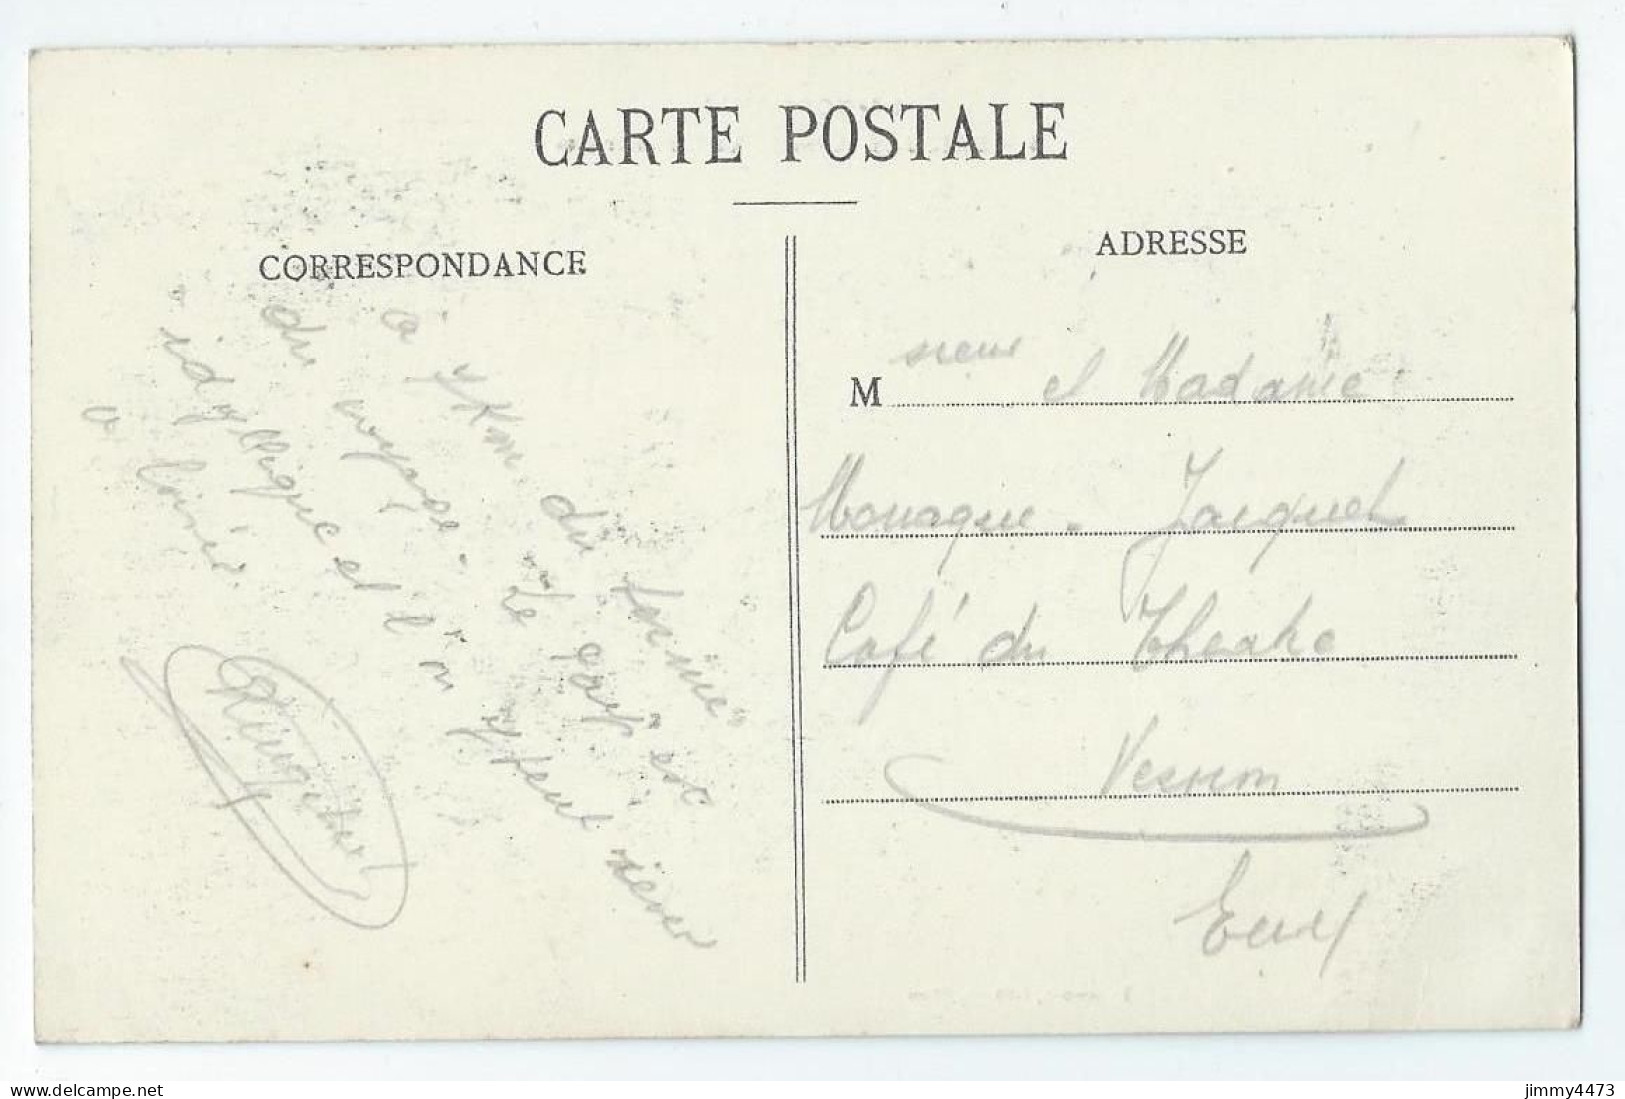 CARTE POSTALE
CORRESPONDANCE
a 7 Km du terme
du voyage. Le pays est
idyllique et l'on y peut rêver
à loisir.
ADRESSE
Monsieur et Madame
Jacquet
Café du Theatre
Vernon
Eure
www.delcampe.net
jimmy4473